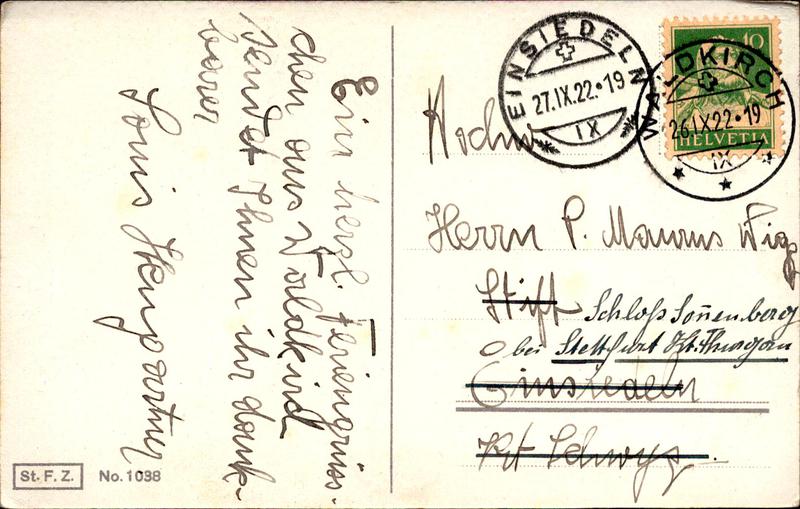 Ein herzl. Feriengrüss-
chen aus Waldkirch
sendet Ihnen ihr dank-
barer
Louis Hengartner
St. F. Z. No. 1038
EINSIEDELN
27.IX.22•19
IX
10
HELVETIA
WALDKIRCH
26.IX.22•19
IX
Hochw.
Herrn P. Maurus
Stift Schloß Sonnenberg
bei Stettfurt Kt. Thurgau
Einsiedeln
Kt Schwyz.